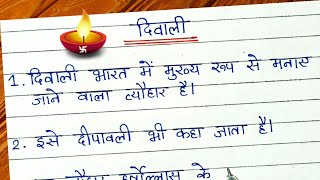 दिवाली
1. दिवाली भारत में मुख्य रूप से मनाए
जाने वाला त्यौहार है।
2. इसे दीपावली भी कहा जाता है।
हर्षोल्लास के